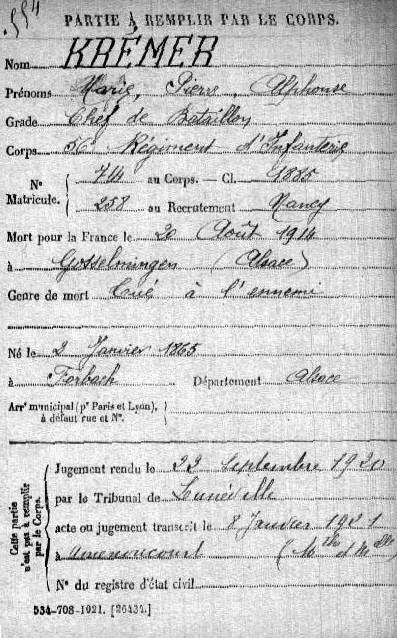 554
PARTIE À REMPLIR PAR LE CORPS.
Nom KREMER
Prénoms Marie, Pierre, Alphonse
Grade Chef de Bataillon
Corps 56e Régiment d'Infanterie
N° Matricule. 714 au Corps. — Cl. 1885
258 au Recrutement Nancy
Mort pour la France le 20 Août 1914
à Gosselmingen (Alsace)
Genre de mort Tué à l'ennemi
Né le 2 Janvier 1865
à Forbach Département Alsace
Arrt municipal (pr Paris et Lyon),
à défaut rue et N°.
Cette partie n'est pas à remplir par le Corps.
Jugement rendu le 22 septembre 1920
par le Tribunal de Lunéville
acte ou jugement transcrit le 8 Janvier 1921
à Amenoncourt (Mthe et Mlle)
N° du registre d'état civil
534-708-1921. [26434.]